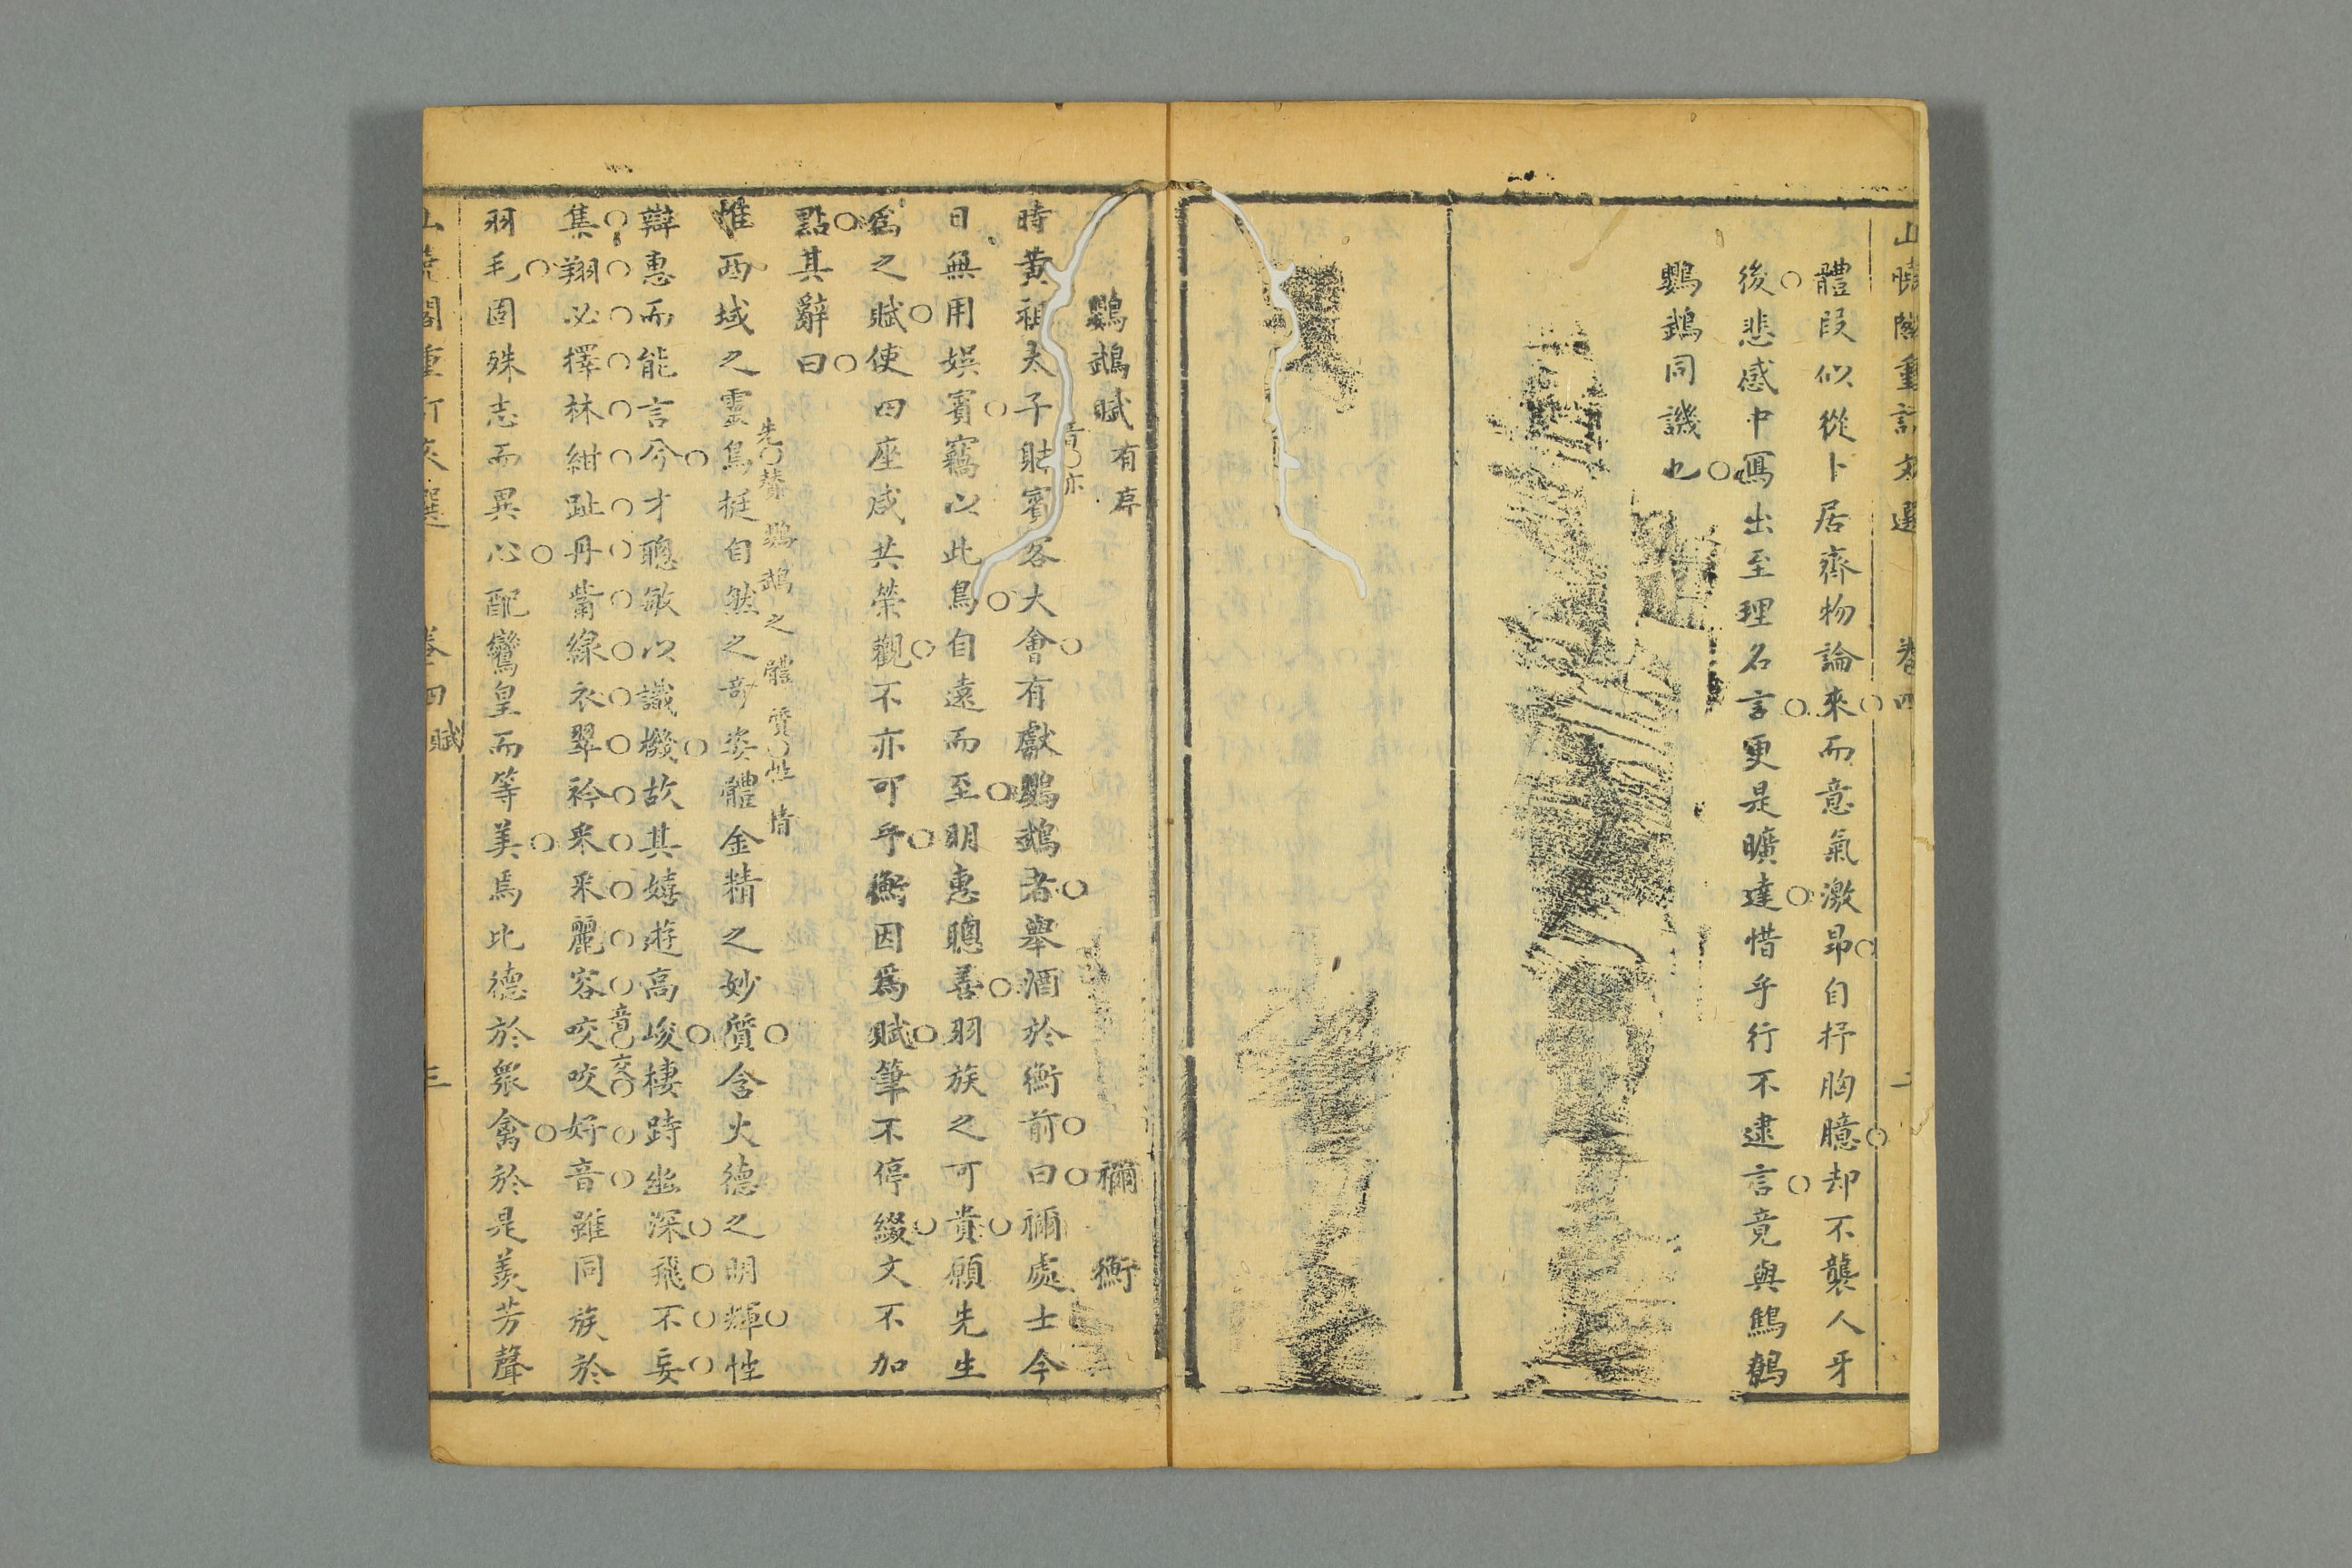 山曉閣重訂文選 卷四 二
體段似從卜居齊物論來而意氣激昂自抒胸臆却不襲人牙
後悲感中寫出至理名言更是曠達惜乎行不逮言竟與鷦鷯
鸚鵡同譏也
鸚鵡賦 有序 禰衡
時黃祖太子射賓客大會有獻鸚鵡者舉酒於衡前曰禰處士今
音亦
日無用娛賓竊以此鳥自遠而至明惠聰善羽族之可貴願先生
爲之賦使四座咸共榮觀不亦可乎衡因爲賦筆不停綴文不加
點其辭曰
先贊鸚鵡之體質性情
惟西域之靈鳥挺自然之奇姿體金精之妙質含火德之明輝性
辯惠而能言兮才聰敏以識機故其嬉遊高峻棲跱幽深飛不妄
集翔必擇林紺趾丹觜綠衣翠衿釆釆麗容咬咬好音雖同族於
音交
羽毛固殊志而異心配鸞皇而等美焉比德於衆禽於是羨芳聲
山曉閣重訂文選 卷四 賦 三